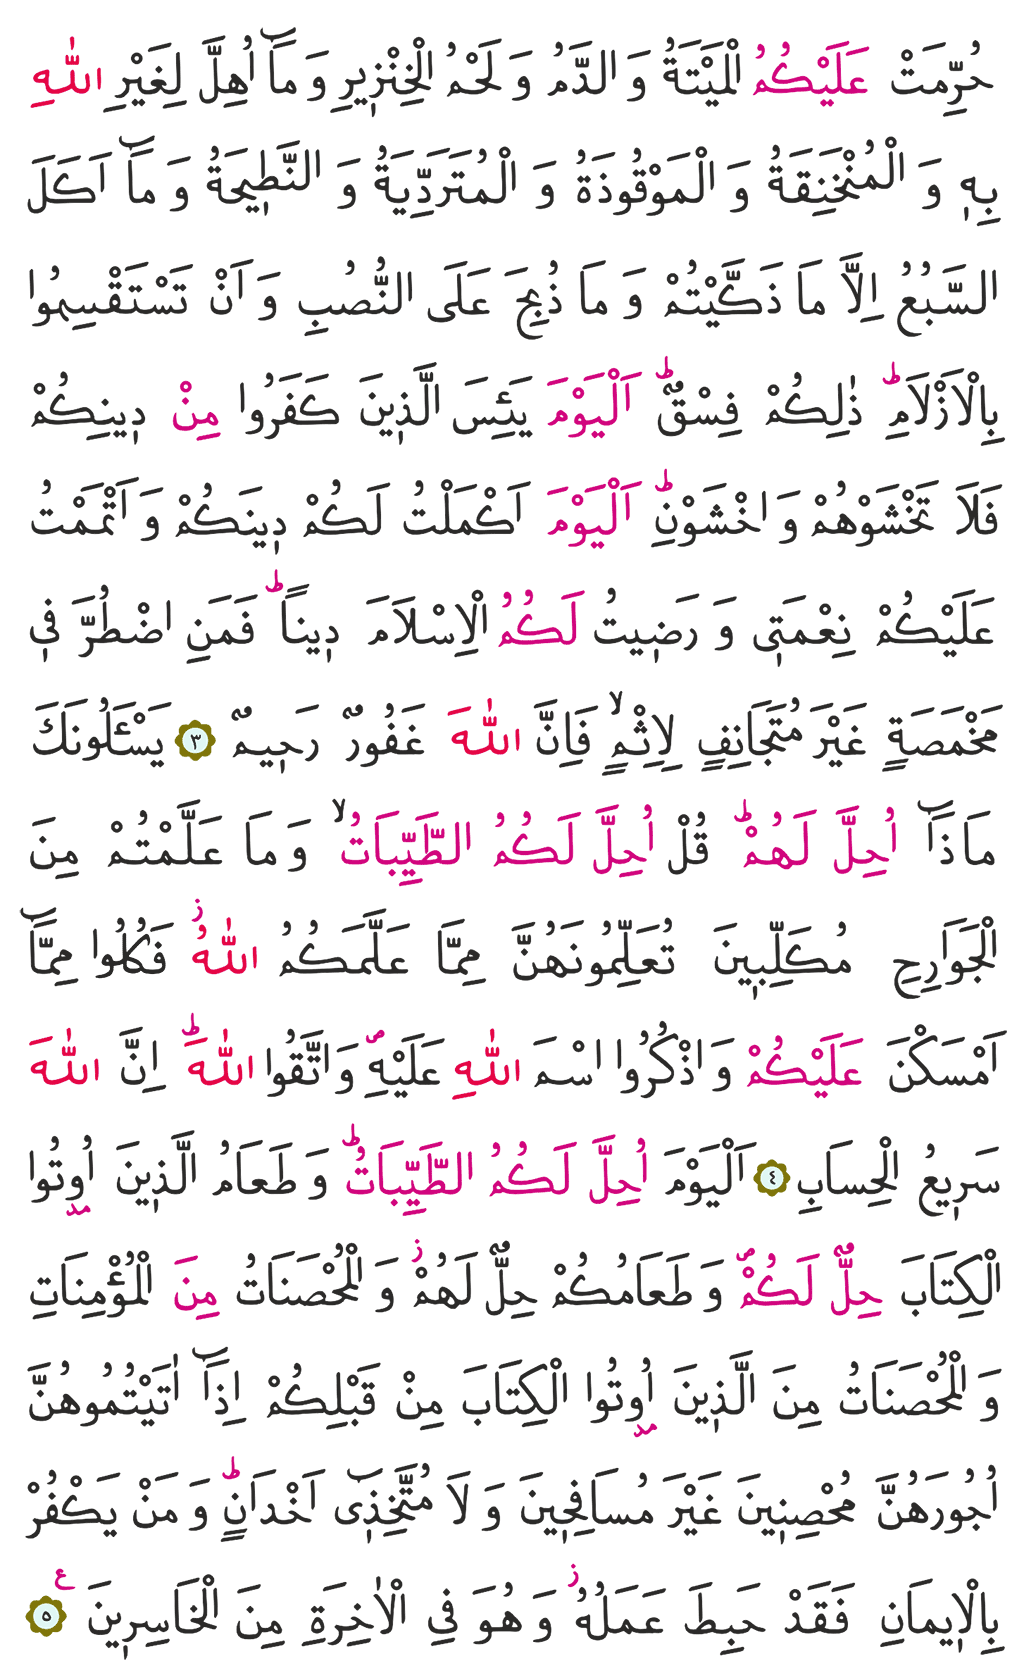 حُرِّمَتْ عَلَيْكُمُ الْمَيْتَةُ وَ الدَّمُ وَ لَحْمُ الْخِنْزٖيرِ وَ مَٓا اُهِلَّ لِغَيْرِ اللّٰهِ
بِهٖ وَ الْمُنْخَنِقَةُ وَ الْمَوْقُوذَةُ وَ الْمُتَرَدِّيَةُ وَ النَّطٖيحَةُ وَ مَٓا اَكَلَ
السَّبُعُ اِلَّا مَا ذَكَّيْتُمْ وَ مَا ذُبِحَ عَلَى النُّصُبِ وَ اَنْ تَسْتَقْسِمُوا
بِالْاَزْلَامِؕ ذٰلِكُمْ فِسْقٌؕ اَلْيَوْمَ يَئِسَ الَّذٖينَ كَفَرُوا مِنْ دٖينِكُمْ
فَلَا تَخْشَوْهُمْ وَ اخْشَوْنِؕ اَلْيَوْمَ اَكْمَلْتُ لَكُمْ دٖينَكُمْ وَ اَتْمَمْتُ
عَلَيْكُمْ نِعْمَتٖى وَ رَضٖيتُ لَكُمُ الْاِسْلَامَ دٖيناًؕ فَمَنِ اضْطُرَّ فٖى
مَخْمَصَةٍ غَيْرَ مُتَجَانِفٍ لِاِثْمٍۙ فَاِنَّ اللّٰهَ غَفُورٌ رَحٖيمٌ ٣ يَسْـَٔلُونَكَ
مَاذَٓا اُحِلَّ لَهُمْؕ قُلْ اُحِلَّ لَكُمُ الطَّيِّبَاتُۙ وَ مَا عَلَّمْتُمْ مِنَ
الْجَوَارِحِ مُكَلِّبٖينَ تُعَلِّمُونَهُنَّ مِمَّا عَلَّمَكُمُ اللّٰهُؗ فَكُلُوا مِمَّٓا
اَمْسَكْنَ عَلَيْكُمْ وَ اذْكُرُوا اسْمَ اللّٰهِ عَلَيْهِࣕ وَ اتَّقُوا اللّٰهَؕ اِنَّ اللّٰهَ
سَرٖيعُ الْحِسَابِ ٤ اَلْيَوْمَ اُحِلَّ لَكُمُ الطَّيِّبَاتُؕ وَ طَعَامُ الَّذٖينَ اُوتُوا
الْكِتَابَ حِلٌّ لَكُمْࣕ وَ طَعَامُكُمْ حِلٌّ لَهُمْؗ وَ الْمُحْصَنَاتُ مِنَ الْمُؤْمِنَاتِ
وَ الْمُحْصَنَاتُ مِنَ الَّذٖينَ اُوتُوا الْكِتَابَ مِنْ قَبْلِكُمْ اِذَٓا اٰتَيْتُمُوهُنَّ
اُجُورَهُنَّ مُحْصِنٖينَ غَيْرَ مُسَافِحٖينَ وَ لَا مُتَّخِذٖٓى اَخْدَانٍؕ وَ مَنْ يَكْفُرْ
بِالْاٖيمَانِ فَقَدْ حَبِطَ عَمَلُهُؗ وَ هُوَ فِى الْاٰخِرَةِ مِنَ الْخَاسِرٖينَ ٥ ع